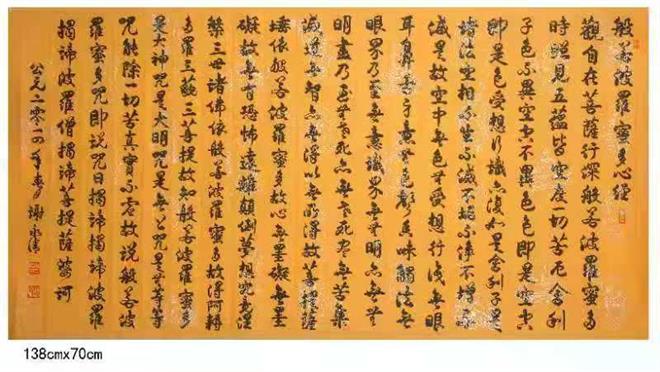 般若波羅蜜多心經
觀自在菩薩行深般若波羅蜜多
時照見五蘊皆空度一切苦厄舍利
子色不異空空不異色色即是空空
即是色受想行識亦復如是舍利子是
諸法空相不生不滅不垢不淨不增不
減是故空中無色無受想行識無眼
耳鼻舌身意無色聲香味觸法無
眼界乃至無意識界無無明亦無無
明盡乃至無老死亦無老死盡無苦集
滅道無智亦無得以無所得故菩提薩
埵依般若波羅蜜多故心無罣礙無罣
礙故無有恐怖遠離顛倒夢想究竟涅
槃三世諸佛依般若波羅蜜多故得阿耨
多羅三藐三菩提故知般若波羅蜜多
是大神咒是大明咒是無上咒是無等等
咒能除一切苦真實不虛故說般若波
羅蜜多咒即說咒曰揭諦揭諦波羅
揭諦波羅僧揭諦菩提薩婆訶
公元二零一四年春 謝永
138cmx70cm